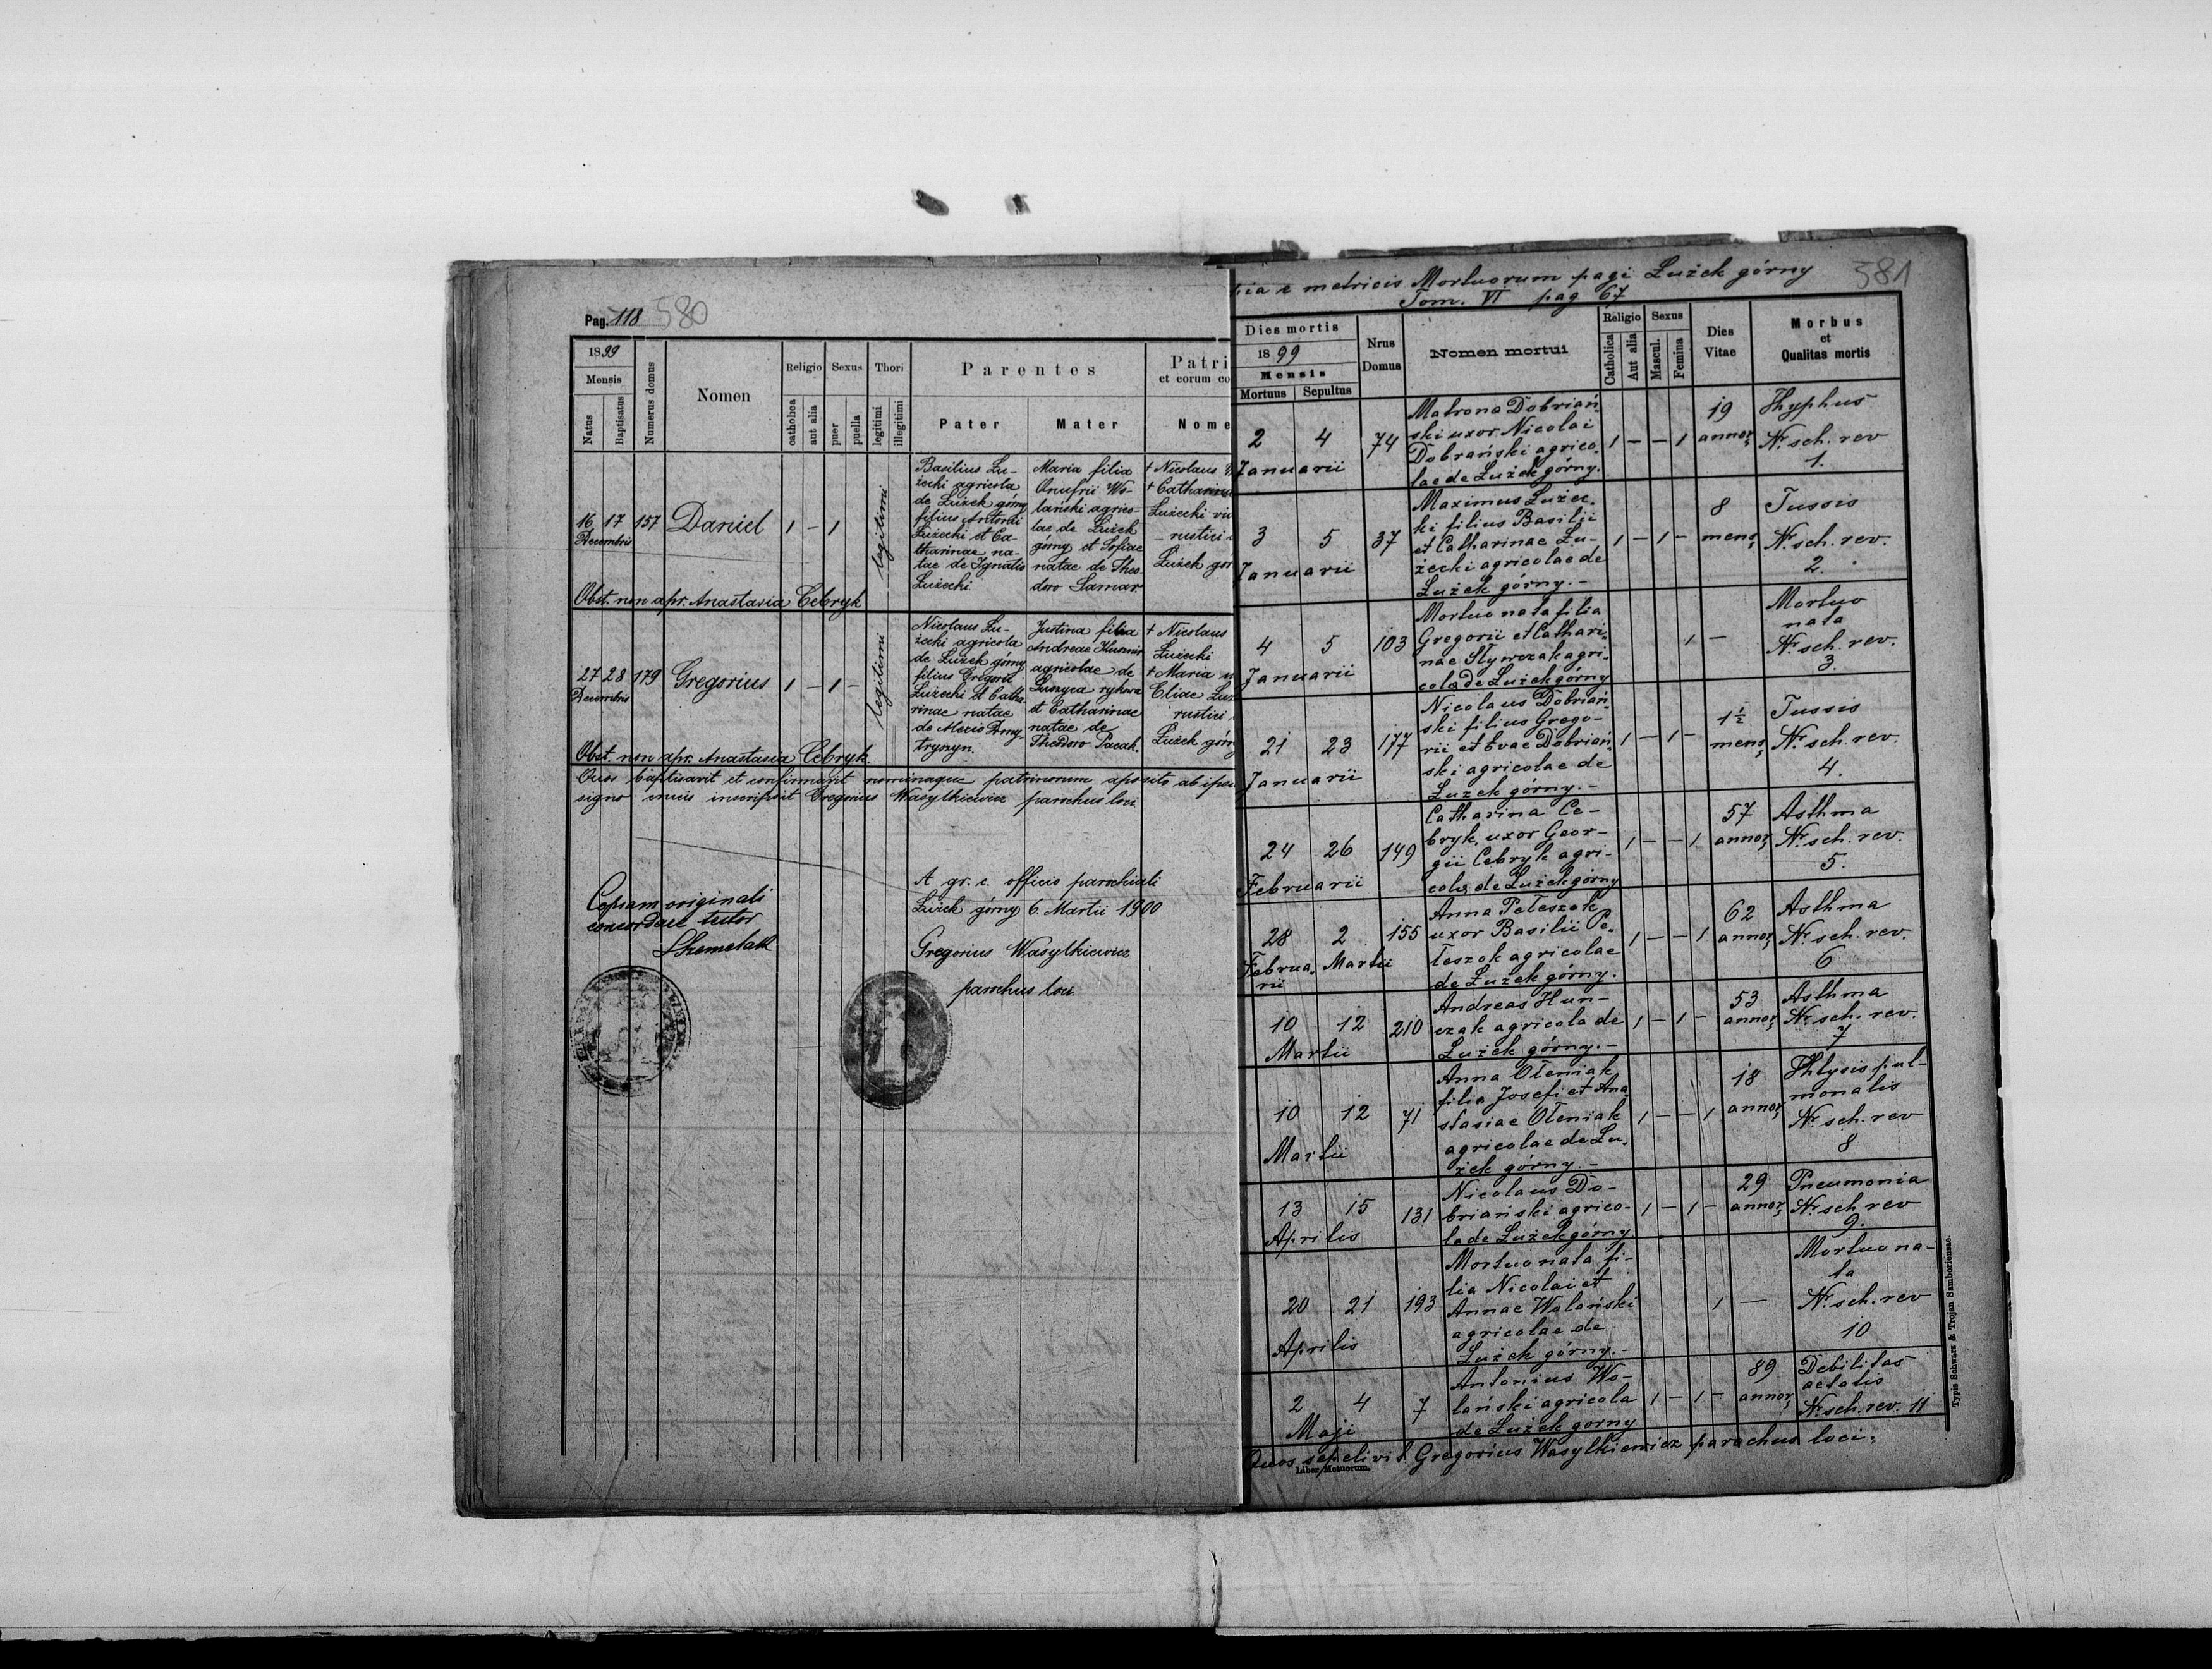 Pag. 118 580
1899
Mensis
Natus
Baptisatus
Numerus domus
Nomen
Religio
catholica
aut alia
Sexus
puer
puella
Thori
legitimi
illegitimi
Parentes
Pater
Mater
Patri
et eorum co
Nome
16 17 157 Daniel 1 – 1
Decembris
legitimi
Basilius Łu-
żecki agricola
de Łużek górny
filius Antonii
Łużecki et Ca-
tharinae na-
tae de Ignatio
Łużecki
Maria filia
Onufrii Wo-
lański agrico-
lae de Łużek
górny et Sofiae
natae de Theo-
doro Samar
+ Nicolaus
+ Catharina
Łużecki
rustici
Łużek gór
Obst. non apr. Anastasia Cebryk
27 28 179 Gregorius 1 – 1 –
Decembris
legitimi
Nicolaus Łu-
żecki agricola
de Łużek górny
filius Gregorii
Łużecki et Catha-
rinae natae
de Alexio Dmy-
trynyn.
Justina filia
Andreae
agricolae de
rykowa
et Catharinae
natae de
Theodoro
+ Nicolaus
Łużecki
+ Maria
Eliae
rustici
Łużek górn
Obst. non apr. Anastasia Cebryk.
Quos baptisavit et confirmavit nominaque patrinorum aposito ab ipsis
signo crucis inscripsit Gregorius Wasylkiewicz parochus loci
Copiam originali
concordare testor
A gr. c. officio parochiali
Łużek górny 6. Martii 1900
Gregorius Wasylkiewicz
parochus loci
pia e metricis Mortuorum pagi Łużek górny 581
Tom. VI pag 67
Dies mortis
1899
Mensis
Mortuus
Sepultus
Nrus
Domus
Nomen mortui
Religio
Catholica
Aut alia
Sexus
Mascul.
Femina
Dies
Vitae
Morbus
et
Qualitas mortis
2 4 74
Januarii
Matrona Dobriań-
ski uxor Nicolai
Dobrański agrico-
lae de Łużek górny.
1 – – 1
19
annor
Thyphus
Nr. sch. rev
1.
3 5 37
Januarii
Maximus Łużec-
ki filius Basilii
et Catharinae Łu-
żecki agricolae de
Łużek górny.–
1 – 1 –
8
mens
Tussis
Nr. sch. rev.
2.
4 5 103
Januarii
Mortuo nata filia
Gregorii et Cathari-
nae Sływczak agri-
cola de Łużek górny
1 –
Mortuo
nata
Nr. sch. rev.
3.
21 23 177
Januarii
Nicolaus Dobriań-
ski filius Grego-
rii et Evae Dobriań-
ski agricolae de
Łużek górny.–
1 – 1 –
1½
mens
Tussis
Nr. sch. rev.
4.
24 26 149
Februarii
Catharina Ce-
bryk, uxor Geor-
gii Cebryk agri-
cola de Łużek górny
1 – – 1
57
annor
Asthma
Nr. sch. rev.
5.
28 2 155
Februa- Martii
rii
Anna Pełeszok
uxor Basilii Pe-
łeszok agricolae
de Łużek górny.
1 – – 1
62
annor
Asthma
Nr. sch. rev.
6
10 12 210
Martii
Andreas Hun-
czak agricola de
Łużek górny.–
1 – 1 –
53
annor
Asthma
Nr. sch. rev.
7
10 12 71
Martii
Anna Oleniak
filia Josefi et Ana-
stasiae Oleniak
agricolae de Łu-
żek górny.–
1 – – 1
18
annor
Phtysis pul-
monalis
Nr. sch. rev
8
13 15 131
Aprilis
Nicolaus Do-
briański agrico-
la de Łużek górny
1 – 1 –
29
annor
Pneumonia
Nr. sch rev
9.
20 21 193
Aprilis
Mortuo nata fi-
lia Nicolai et
Annae Wolański
agricolae de
Łużek górny.–
1 —
Mortuo na-
ta
Nr. sch. rev
10
2 4 7
Maji
Antonius Wo-
lański agricola
de Łużek górny
1 – 1 –
89
annor
Debilitas
aetatis
Nr. sch. rev. 11
Quos sepelivit Gregorius Wasylkiewicz parochus loci.
Liber Motuorum.
Typis Schwarz & Trojan Samboriensae.